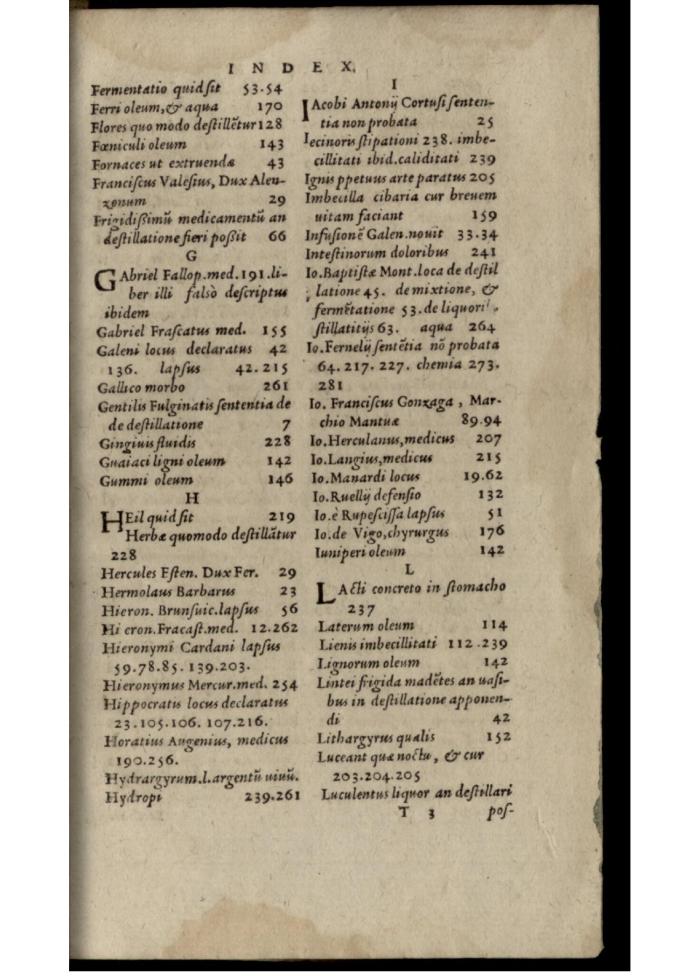 INDEX.
Fermentatio quid ſit 53.54
Ferri oleum,& aqua 170
Flores quo modo deſtillẽtur 128
Fœniculi oleum 143
Fornaces ut extruendæ 43
Franciſcus Valeſius, Dux Alen-
zonum 29
Frigidißimũ medicamentũ an
deſtillatione fieri poßit 66
G
GAbriel Fallop.med.191.li-
ber illi falsò deſcriptus
ibidem
Gabriel Fraſcatus med. 155
Galeni locus declaratus 42
136. lapſus 42.215
Gallico morbo 261
Gentilis Fulginatis ſententia de
de deſtillatione 7
Gingiuis fluidis 228
Guaiaci ligni oleum 142
Gummi oleum 146
H
HEil quid ſit 219
Herbæ quomodo deſtillãtur
228
Hercules Eſten. Dux Fer. 29
Hermolaus Barbarus 23
Hieron. Brunſuic.lapſus 56
Hi eron.Fracaſt.med. 12.262
Hieronymi Cardani lapſus
59.78.85.139.203.
Hieronymus Mercur.med. 254
Hippocratis locus declaratus
23.105.106.107.216.
Horatius Augenius, medicus
190.256.
Hydrargyrum.l.argentũ uiuũ.
Hydropi 239.261
I
IAcobi Antonij Cortuſi ſenten-
tia non probata 25
Iecinoris ſtipationi 238. imbe-
cillitati ibid.caliditati 239
Ignis ppetuus arte paratus 205
Imbecilla cibaria cur breuem
uitam faciant 159
Infuſionẽ Galen.nouit 33.34
Inteſtinorum doloribus 241
Io.Baptiſtæ Mont.loca de deſtil
latione 45. de mixtione, &
fermẽtatione 53.de liquori
ſtillatitijs 63. aqua 264
Io.Fernelij ſentẽtia nõ probata
64.217.227. chemia 273.
281
Io. Franciſcus Gonzaga, Mar-
chio Mantuæ 89.94
Io.Herculanus,medicus 207
Io.Langius,medicus 215
Io.Manardi locus 19.62
Io.Ruellij defenſio 132
Io.è Rupeſciſſa lapſus 51
Io.de Vigo,chyrurgus 176
Iuniperi oleum 142
L
LActi concreto in ſtomacho
237
Laterum oleum 114
Lienis imbecillitati 112.239
Lignorum oleum 142
Lintei frigida madẽtes an uaſi-
bus in deſtillatione apponen-
di 42
Lithargyrus qualis 152
Luceant quæ noctu, & cur
203.204.205
Luculentus liquor an deſtillari
T 3 poſ-